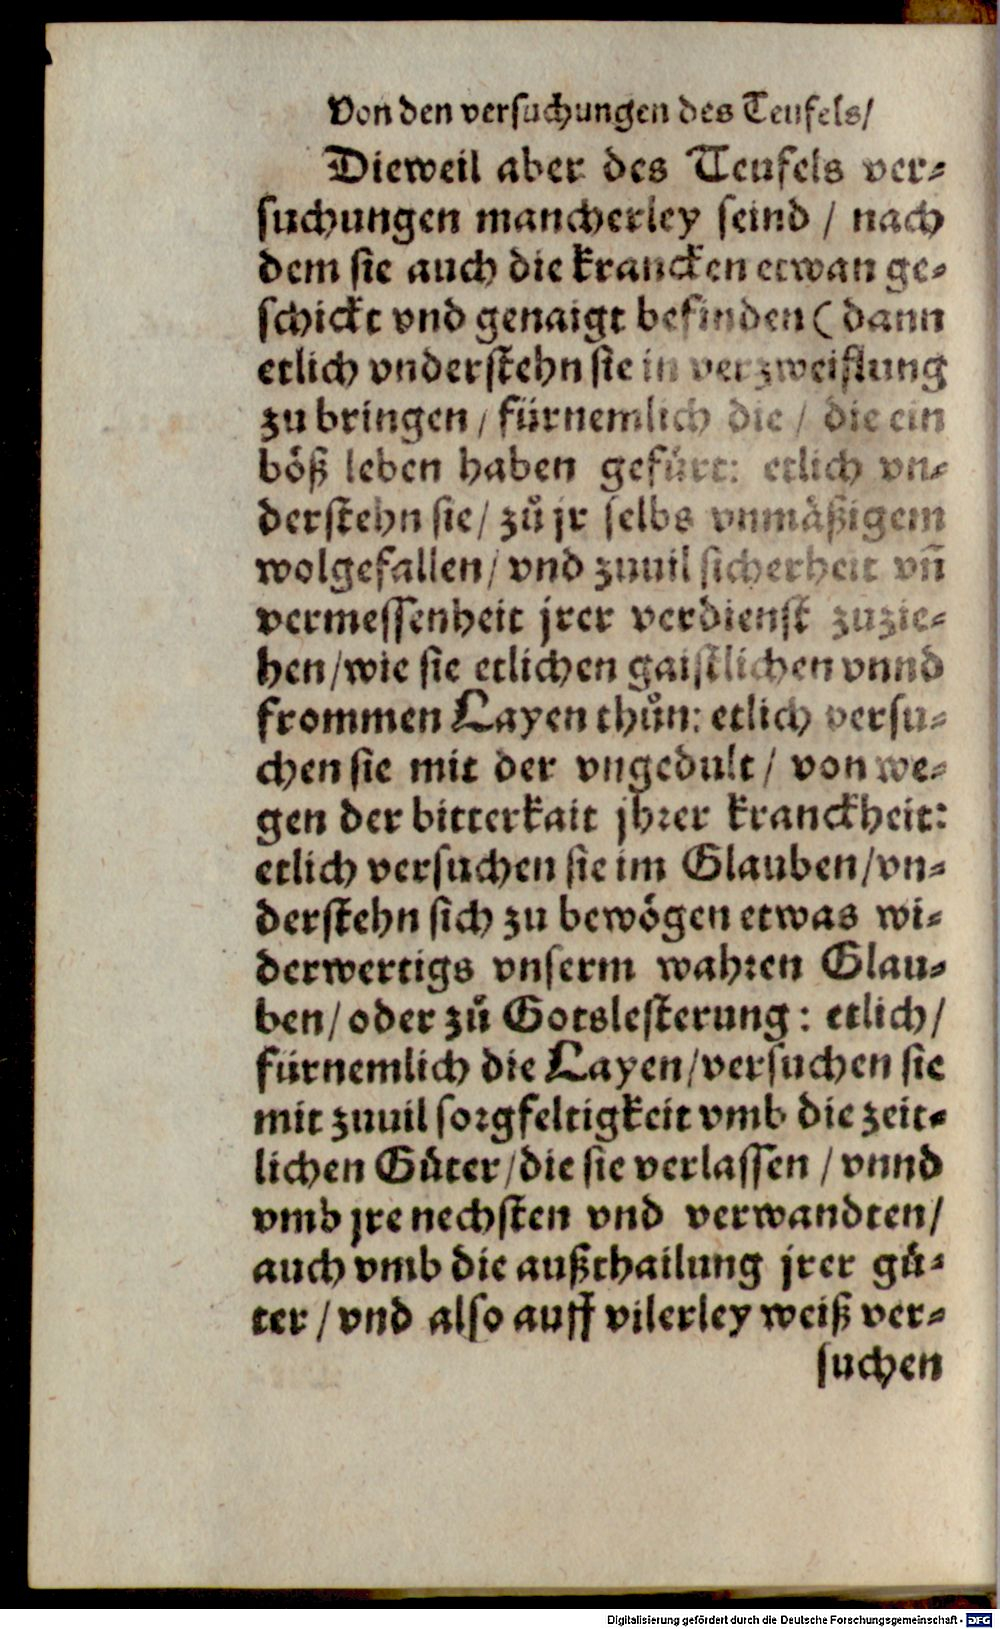 Von den versuchungen des Teufels/
Dieweil aber des Teufels ver⸗
suchungen mancherley seind / nach
dem sie auch die krancken etwan ge⸗
schickt vnd genaigt befinden (dann
etlich vnderstehn sie in verzweiflung
zu bringen / fürnemlich die / die ein
böß leben haben gefürt: etlich vn⸗
derstehn sie / zů jr selbs vnmäßigem
wolgefallen / vnd zuuil sicherheit vñ
vermessenheit jrer verdienst zuzie⸗
hen / wie sie etlichen gaistlichen vnnd
frommen Layen thůn: etlich versu⸗
chen sie mit der vngedult / von we⸗
gen der bitterkait jhrer kranckheit:
etlich versuchen sie im Glauben / vn⸗
derstehn sich zu bewögen etwas wi⸗
derwertigs vnserm wahren Glau⸗
ben / oder zů Gotslesterung: etlich /
fürnemlich die Layen / versuchen sie
mit zuuil sorgfeltigkeit vmb die zeit⸗
lichen Güter / die sie verlassen / vnnd
vmb jre nechsten vnd verwandten /
auch vmb die außthailung jrer gü⸗
ter / vnd also auff vilerley weiß ver⸗
suchen
Digitalisierung gefördert durch die Deutsche Forschungsgemeinschaft - DFG